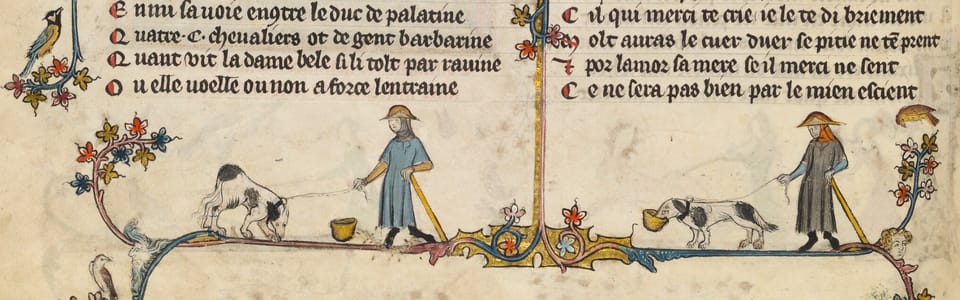 E nmi sa uoie engtre le duc de palatine
Q uatre · C · cheualiers ot de gent barbarine
Q uant uit la dame bele si li tolt par rauine
O u elle uoelle ou non a force lentraine
C il qui merci te crie ie le te di briement
M olt auras le cuer duer se pitie ne tē prent
7 por lamor sa mere se il merci ne sent
C e ne sera pas bien par le mien escient